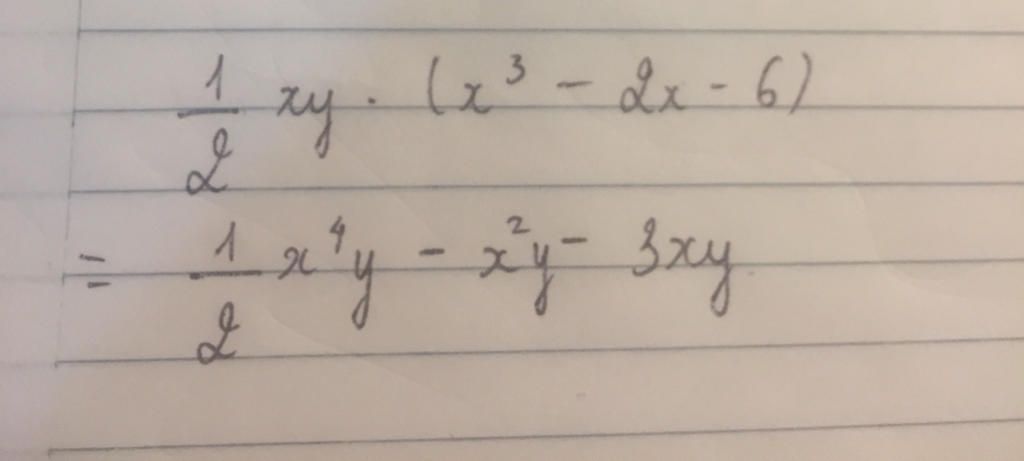 1/2 xy . (x³ - 2x - 6)
= 1/2 x⁴y - x²y - 3xy